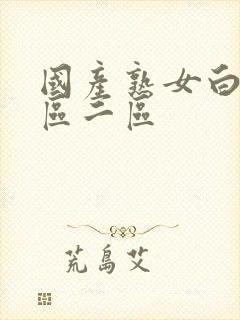 國產熟女白
區二區
荒島艾